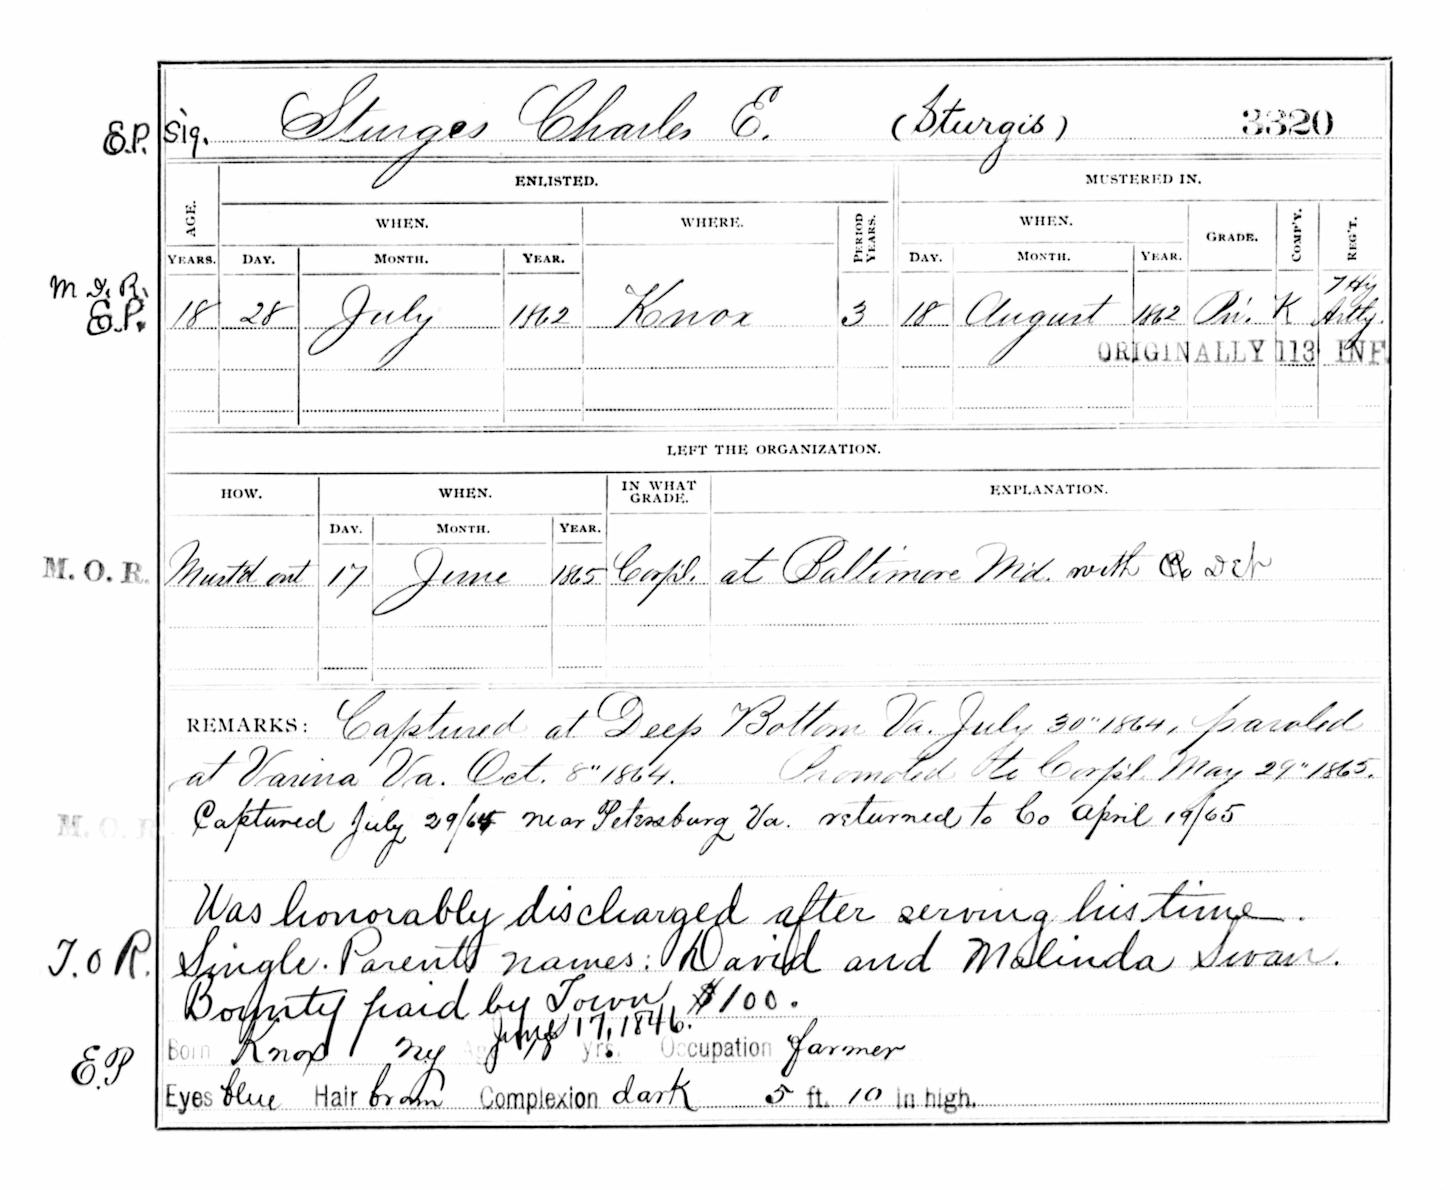 E.P. Sig. Sturges Charles E. (Sturgis) 3320
ENLISTED. MUSTERED IN.
AGE. WHEN. WHERE. PERIOD YEARS. WHEN. GRADE. COMP'Y. REG'T.
YEARS. DAY. MONTH. YEAR. DAY. MONTH. YEAR.
M.D.R. 7 Hy
E.P. 18 28 July 1862 Knox 3 18 August 1862 Pri. K Artty.
ORIGINALLY 113 INF.
LEFT THE ORGANIZATION.
HOW. WHEN. IN WHAT GRADE. EXPLANATION.
DAY. MONTH. YEAR.
M.O.R. Must'd out 17 June 1865 Corp'l. at Baltimore Md. with Co Det
REMARKS: Captured at Deep Bottom Va. July 30" 1864, paroled
at Varina Va. Oct. 8" 1864. Promoted to Corp'l. May 29" 1865.
M.O.R. Captured July 29/64 near Petersburg Va. returned to Co April 19/65
Was honorably discharged after serving his time.
T.O.R. Single. Parents names: David and Malinda Swan.
Bounty paid by Town $100.
June 17, 1846.
E.P Born Knox Ny Age 18 yrs. Occupation farmer
Eyes blue Hair brown Complexion dark 5 ft. 10 in high.